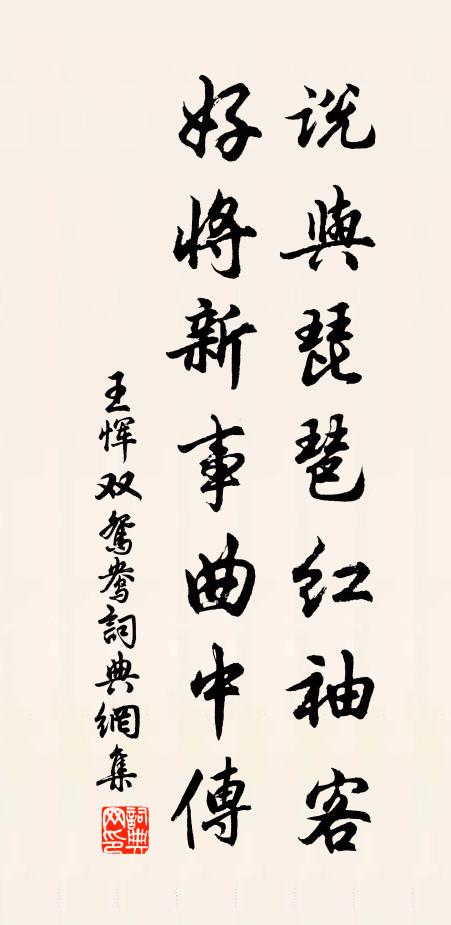 说與琵琶红袖客
好將新事曲中傳
王恽双鴛鴦詞典網集
詞典网印